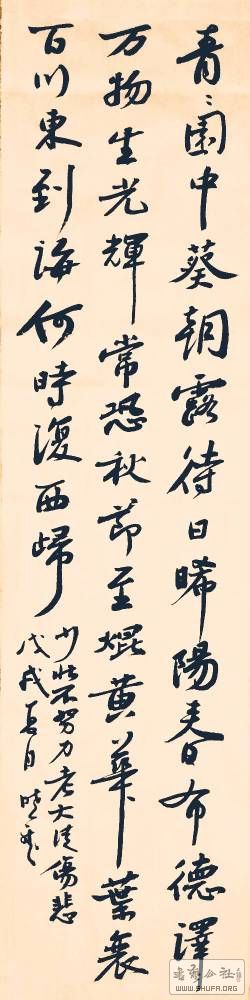 青〻園中葵朝露待日晞陽春布德譯
万物生光輝常恐秋節至焜黄華葉衰
百川東到海何時復西歸
少壯不努力老大徒傷悲
戊戌夏月
书法公社
WWW.SHUFA.ORG